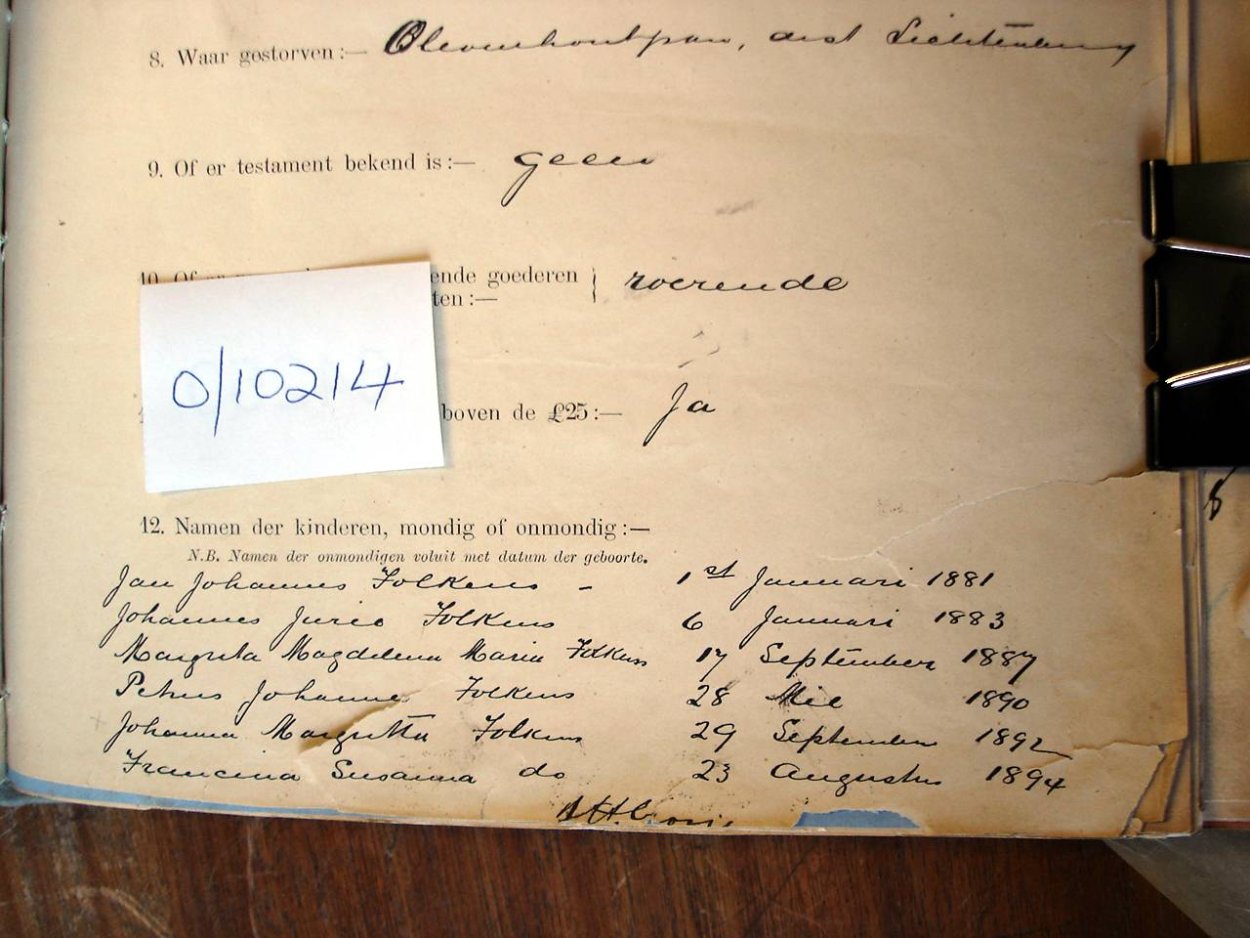 8. Waar gestorven :— Olevenhoutpan, dist Lichtenburg
9. Of er testament bekend is :— geen
10. Of er ende goederen } roerende
ten :—
O/10214
boven de £25 :— Ja
12. Namen der kinderen, mondig of onmondig :—
N.B. Namen der onmondigen voluit met datum der geboorte.
Jan Johannes Folkens - 1st Januari 1881
Johannes Jurie Folkens 6 Januari 1883
Margrita Magdelena Maria Folkens 17 September 1887
Petrus Johannes Folkens 28 Mei 1890
Johanna Margritta Folkens 29 September 1892
Francina Susanna do 23 Augustus 1894